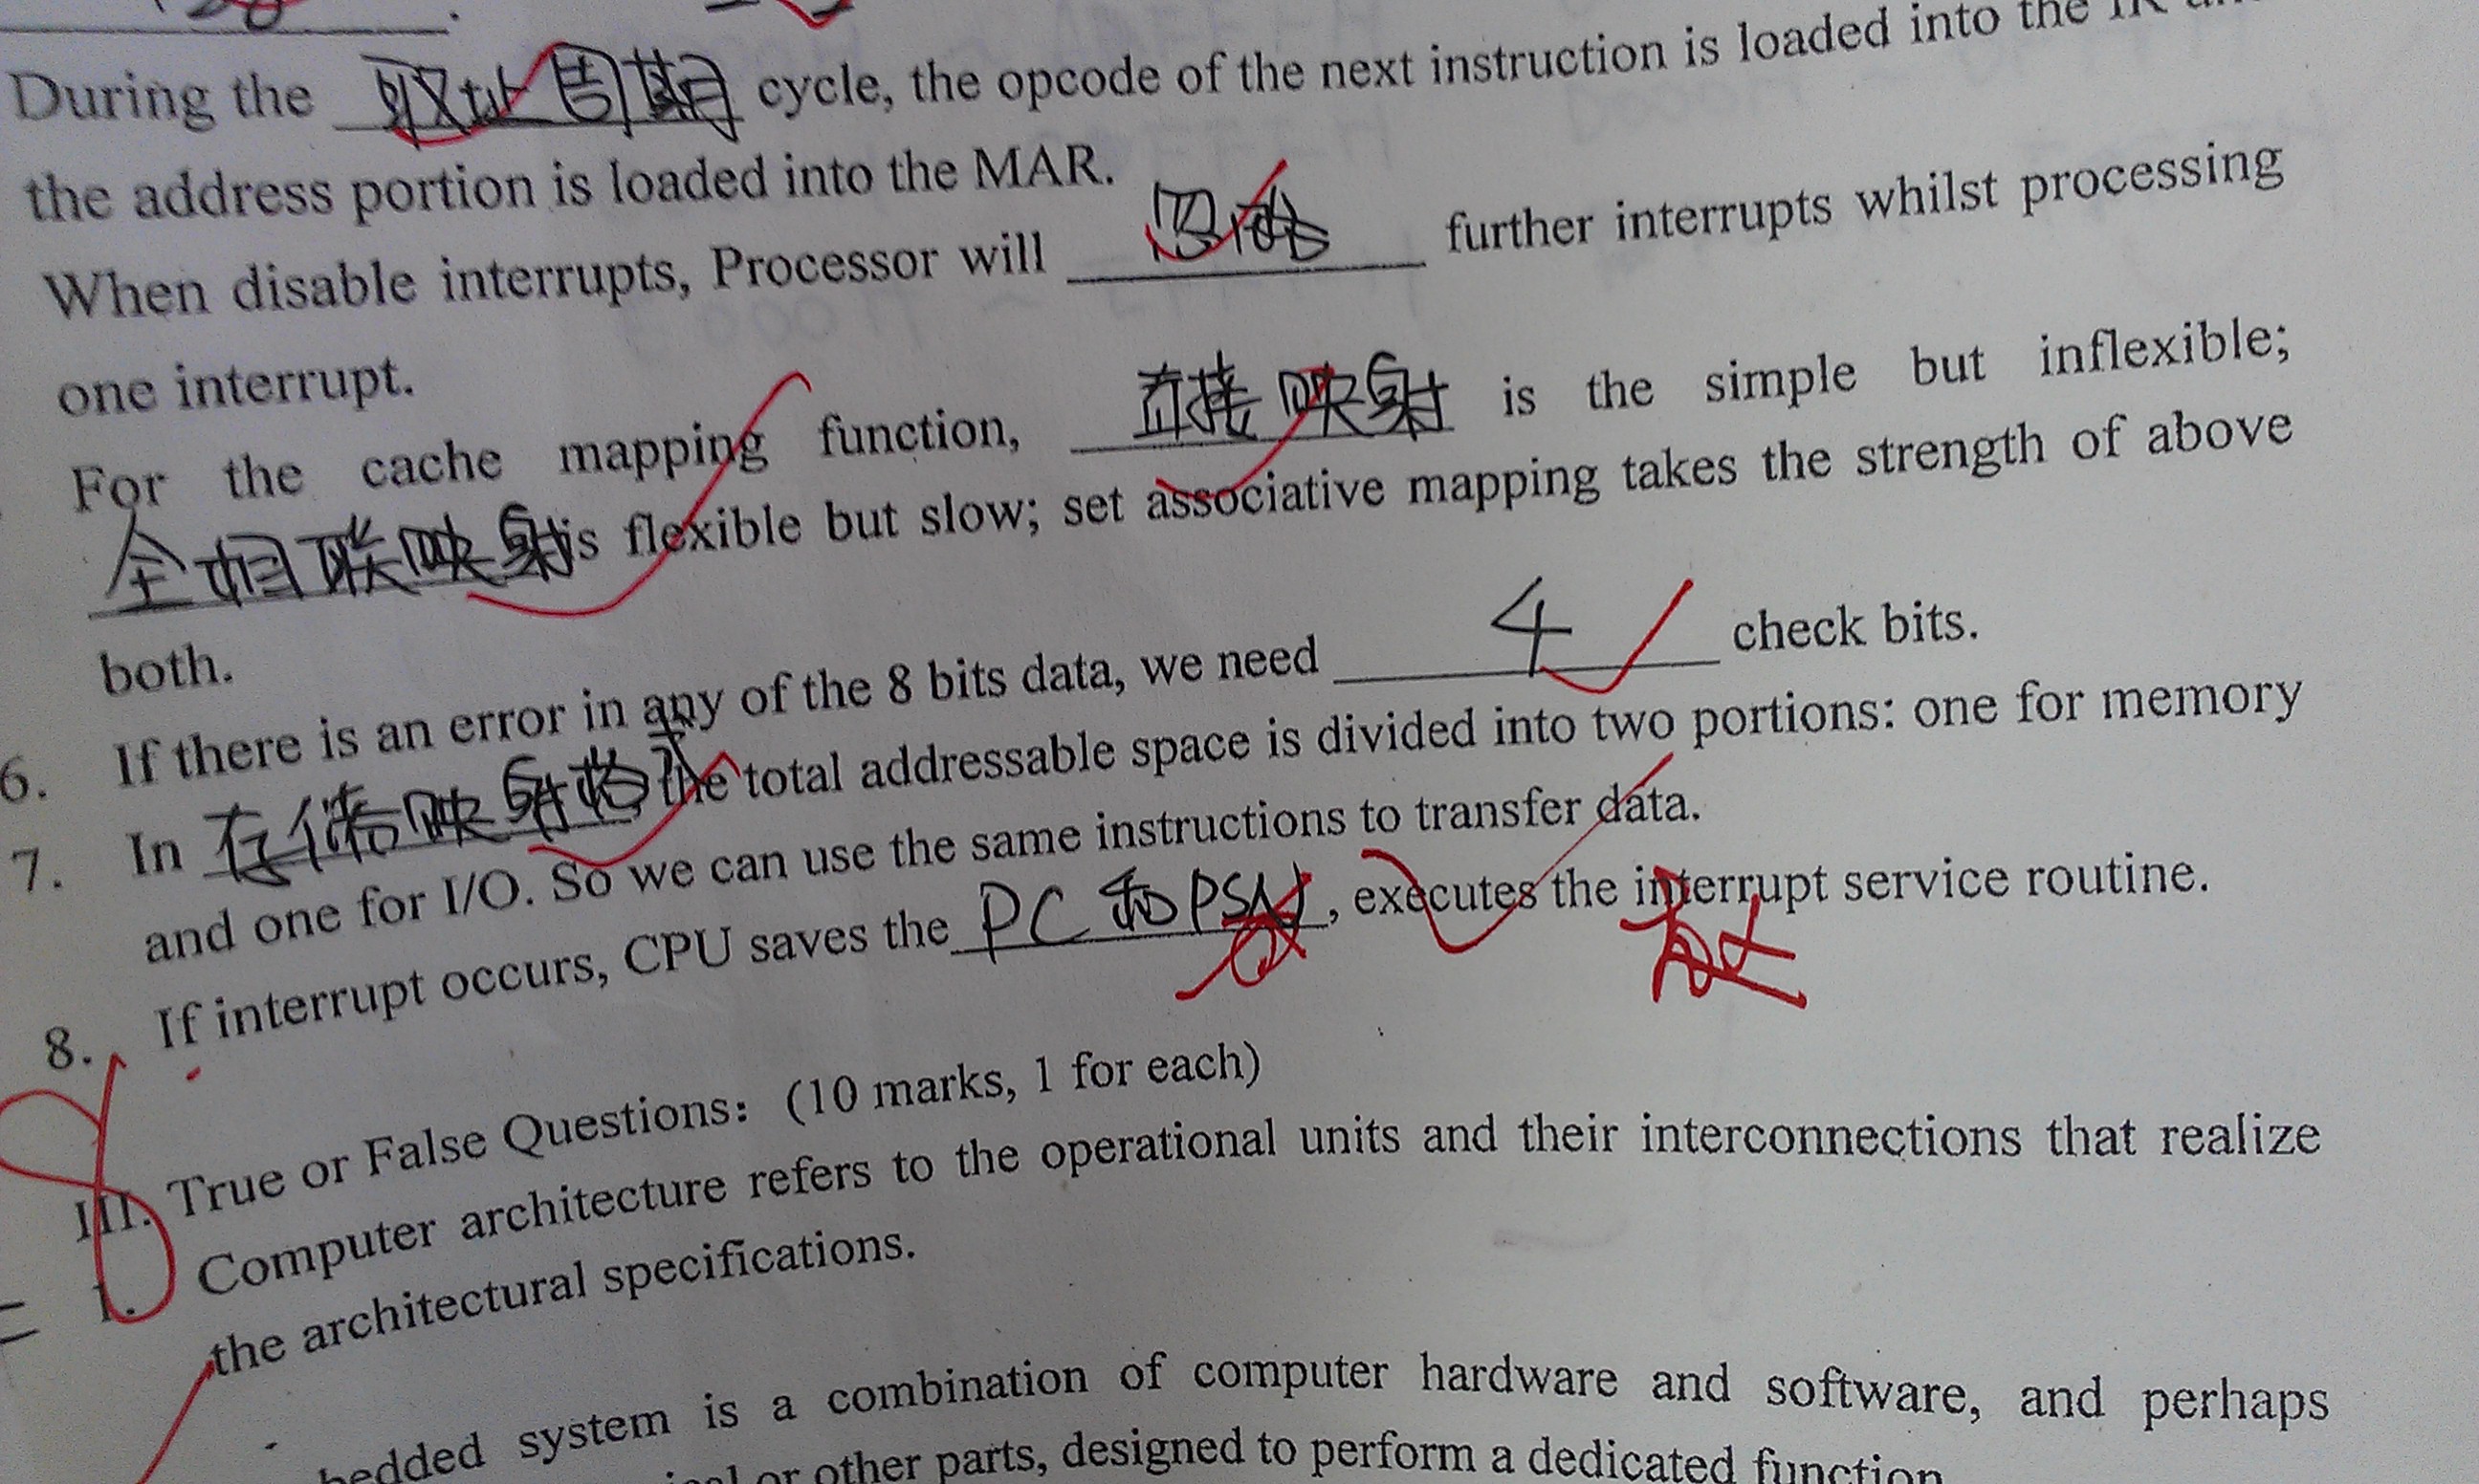 During the 取址周期 cycle, the opcode of the next instruction is loaded into the IR
the address portion is loaded into the MAR.
When disable interrupts, Processor will further interrupts whilst processing
one interrupt.
For the cache mapping function, 直接映射 is the simple but inflexible;
全相联映射 is flexible but slow; set associative mapping takes the strength of above
both.
6. If there is an error in any of the 8 bits data, we need 4 check bits.
7. In 存储映射 the total addressable space is divided into two portions: one for memory
and one for I/O. So we can use the same instructions to transfer data.
8. If interrupt occurs, CPU saves the PC 和 PSW, executes the interrupt service routine.
III. True or False Questions: (10 marks, 1 for each)
1. Computer architecture refers to the operational units and their interconnections that realize
the architectural specifications.
bedded system is a combination of computer hardware and software, and perhaps
or other parts, designed to perform a dedicated function